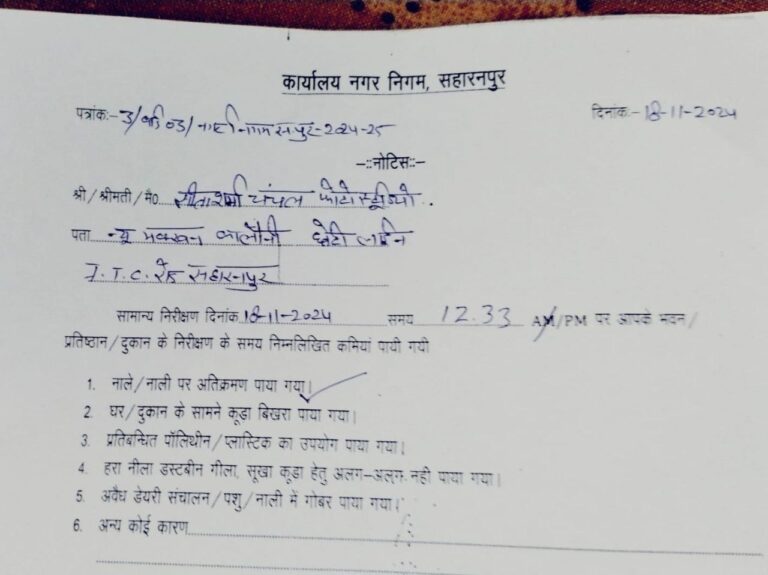 कार्यालय नगर निगम, सहारनपुर
पत्रांक:- 3/ 03/ निगम सपुर-2024-25
दिनांक:- 18-11-2024
-::नोटिस::-
श्री/श्रीमती/मै० सीता शर्मा चंचल फोटो स्टूडियो.
पता न्यू मक्खन कालौनी छोटी लाईन
I.T.C. रोड सहारनपुर
सामान्य निरीक्षण दिनांक 18-11-2024 समय 12.33 AM/PM पर आपके भवन/
प्रतिष्ठान/दुकान के निरीक्षण के समय निम्नलिखित कमियां पायी गयी
1. नाले/नाली पर अतिक्रमण पाया गया।
2. घर/दुकान के सामने कूडा बिखरा पाया गया।
3. प्रतिबन्धित पॉलिथीन/प्लास्टिक का उपयोग पाया गया।
4. हरा नीला डस्टबीन गीला, सूखा कूडा हेतु अलग-अलग नही पाया गया।
5. अवैध डेयरी संचालन/पशु/नाली में गोबर पाया गया।
6. अन्य कोई कारण